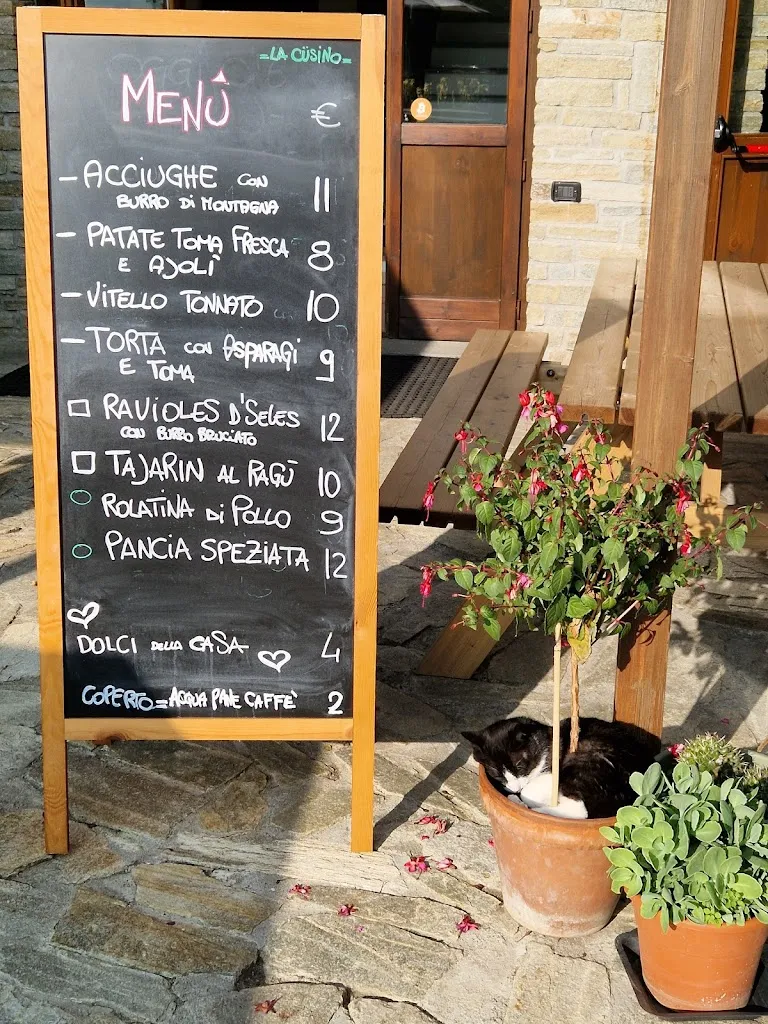 =LA CÜSINO=
MENÙ
€
- ACCIUGHE CON
BURRO DI MONTAGNA 11
- PATATE TOMA FRESCA
E AJOLÌ 8
- VITELLO TONNATO 10
- TORTA CON ASPARAGI
E TOMA 9
RAVIOLES D'SELES
CON BURRO BRUCIATO 12
TAJARIN AL RAGÙ 10
ROLATINA DI POLLO 9
PANCIA SPEZIATA 12
DOLCI DELLA CASA 4
COPERTO=ACQUA PANE CAFFE' 2